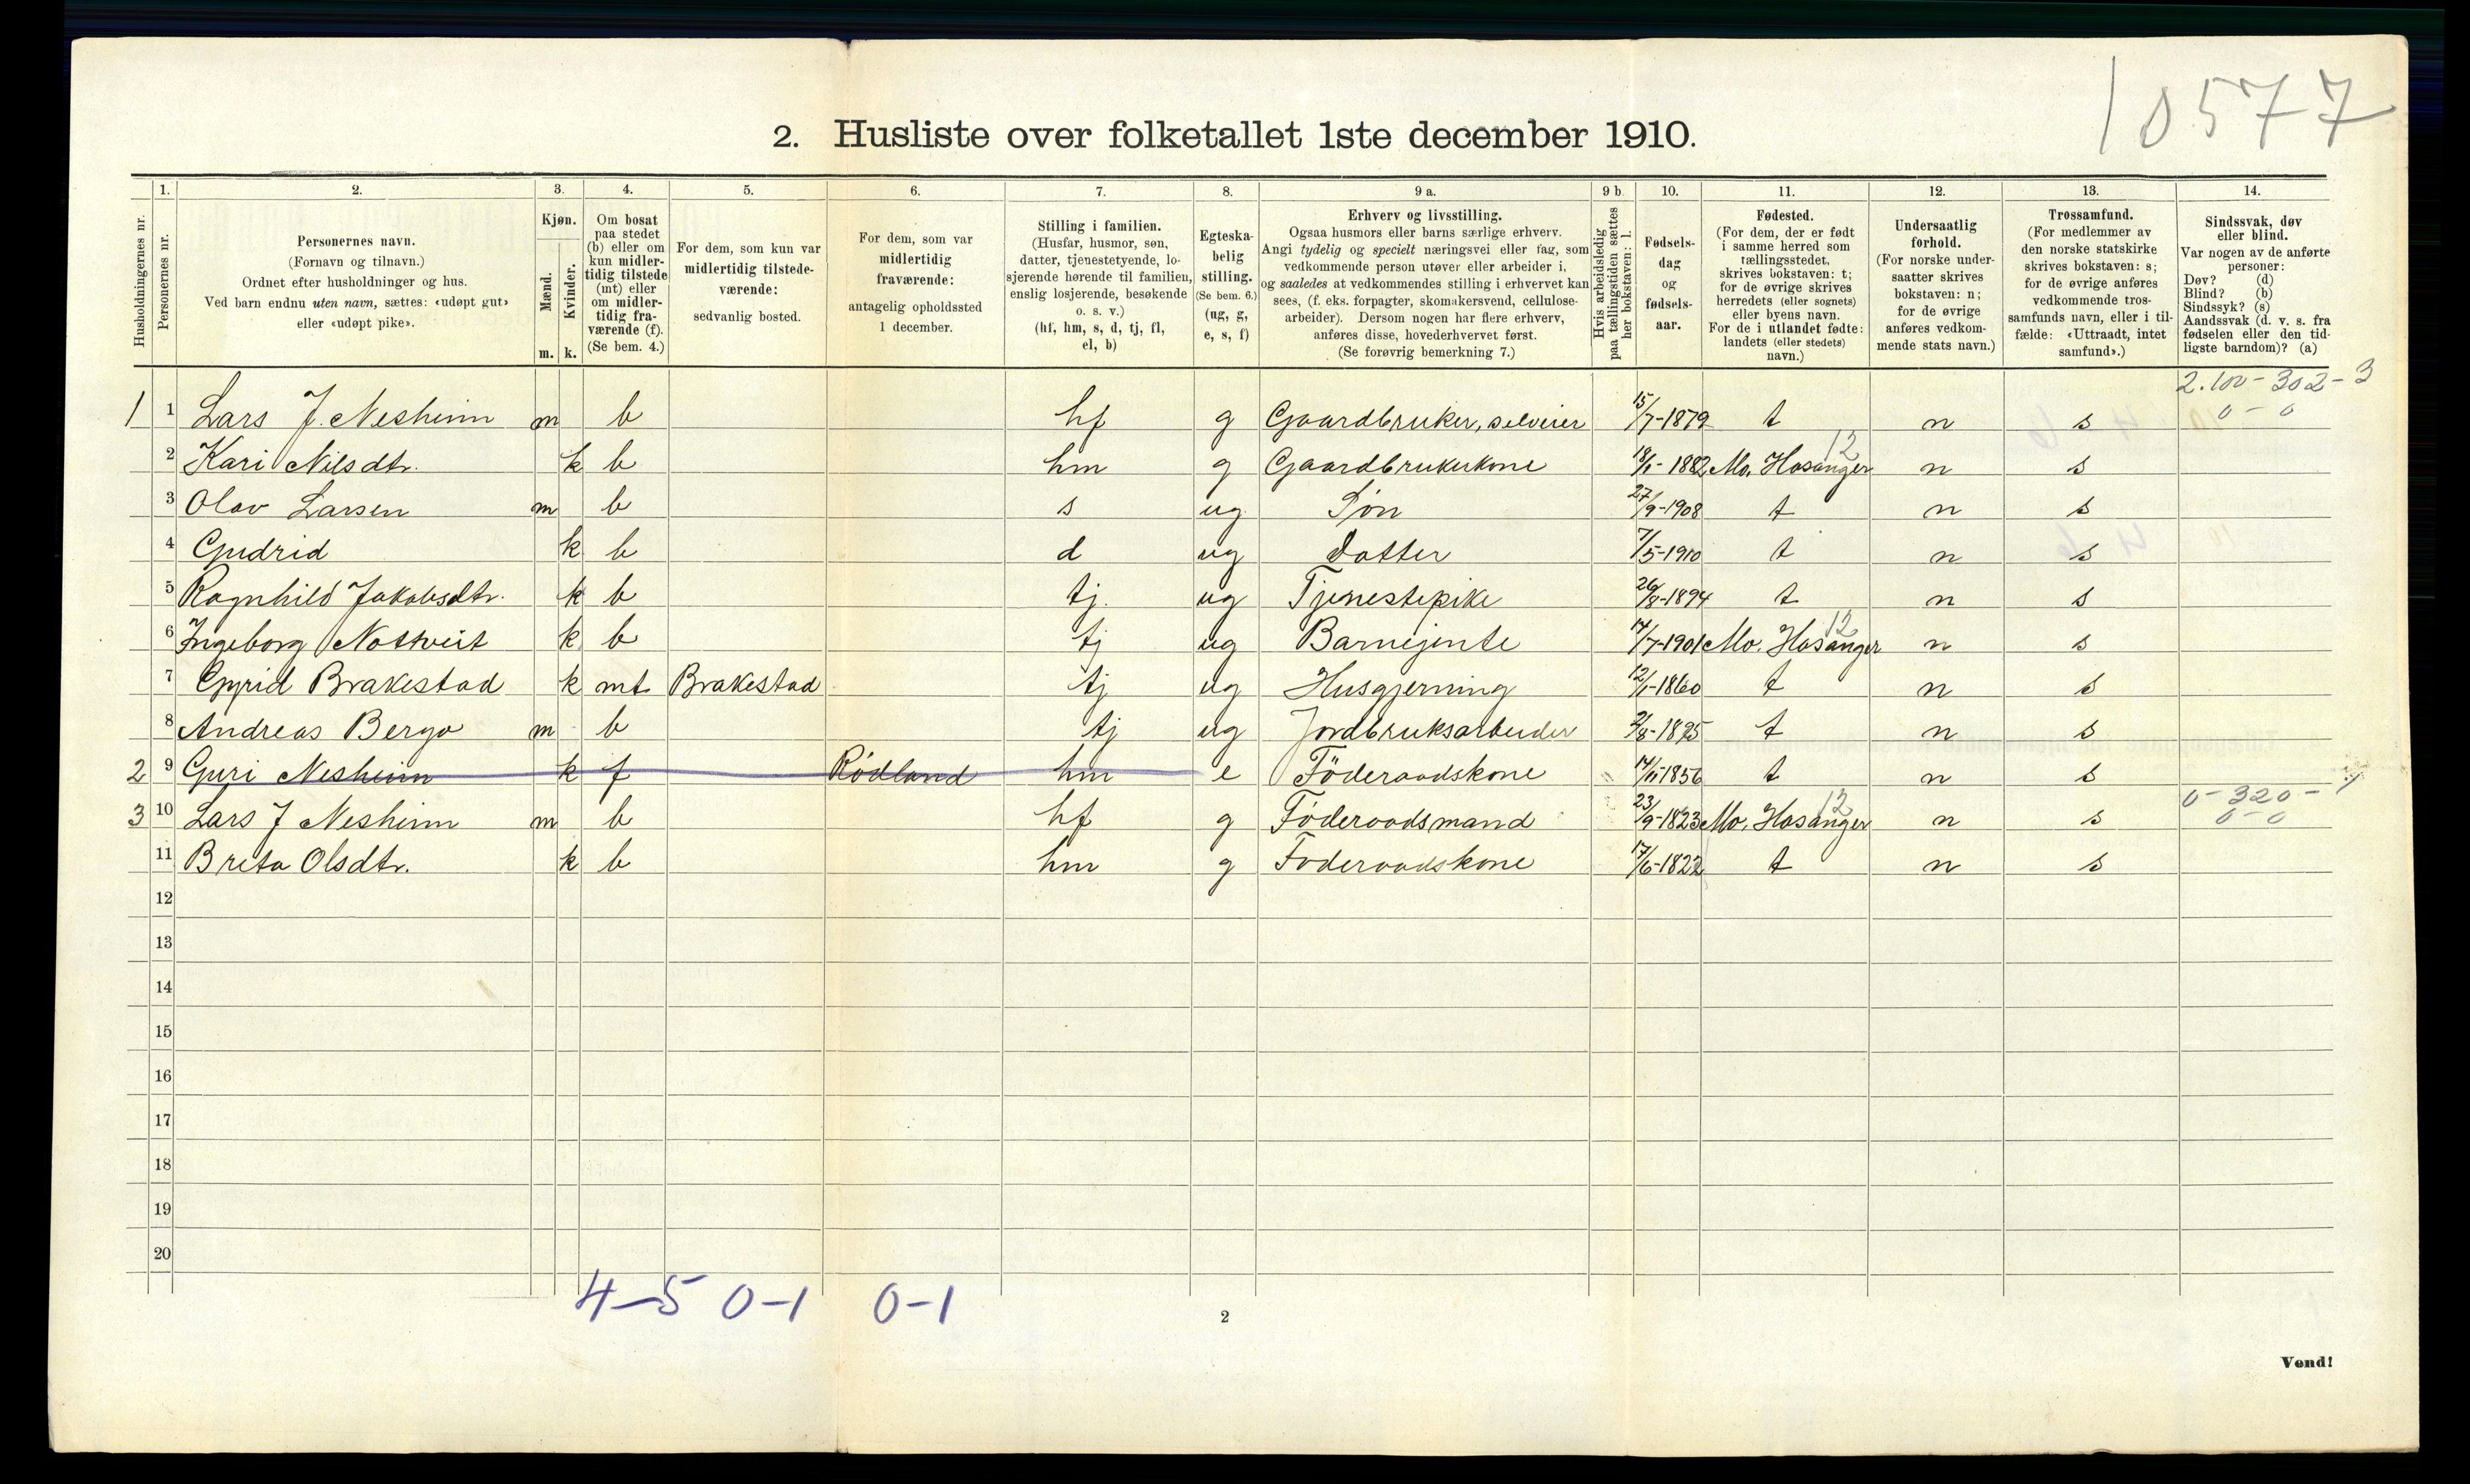 10577
2. Husliste over folketallet 1ste december 1910.
Husholdningernes nr.
1.
Personernes nr.
2.
Personernes navn.
(Fornavn og tilnavn.)
Ordnet efter husholdninger og hus.
Ved barn endnu uten navn, sættes: «udøpt gut»
eller «udøpt pike».
3.
Kjøn.
Mænd.
Kvinder.
m. k.
4.
Om bosat
paa stedet
(b) eller om
kun midler-
tidig tilstede
(mt) eller
om midler-
tidig fra-
værende (f).
(Se bem. 4.)
5.
For dem, som kun var
midlertidig tilstede-
værende:
sedvanlig bosted.
6.
For dem, som var
midlertidig
fraværende:
antagelig opholdssted
1 december.
7.
Stilling i familien.
(Husfar, husmor, søn,
datter, tjenestetyende, lo-
sjerende hørende til familien,
enslig losjerende, besøkende
o. s. v.)
(hf, hm, s, d, tj, fl,
el, b)
8.
Egteska-
belig
stilling.
(Se bem. 6.)
(ug, g,
e, s, f)
9 a.
Erhverv og livsstilling.
Ogsaa husmors eller barns særlige erhverv.
Angi tydelig og specielt næringsvei eller fag, som
vedkommende person utøver eller arbeider i,
og saaledes at vedkommendes stilling i erhvervet kan
sees, (f. eks. forpagter, skomakersvend, cellulose-
arbeider). Dersom nogen har flere erhverv,
anføres disse, hovederhvervet først.
(Se forøvrig bemerkning 7.)
9 b.
Hvis arbeidsledig
paa tællingstiden sættes
her bokstaven: l.
10.
Fødsels-
dag
og
fødsels-
aar.
11.
Fødested.
(For dem, der er født
i samme herred som
tællingsstedet,
skrives bokstaven: t;
for de øvrige skrives
herredets (eller sognets)
eller byens navn.
For de i utlandet fødte:
landets (eller stedets)
navn.)
12.
Undersaatlig
forhold.
(For norske under-
saatter skrives
bokstaven: n;
for de øvrige
anføres vedkom-
mende stats navn.)
13.
Trossamfund.
(For medlemmer av
den norske statskirke
skrives bokstaven: s;
for de øvrige anføres
vedkommende tros-
samfunds navn, eller i til-
fælde: «Uttraadt, intet
samfund».)
14.
Sindssvak, døv
eller blind.
Var nogen av de anførte
personer:
Døv? (d)
Blind? (b)
Sindssyk? (s)
Aandssvak (d. v. s. fra
fødselen eller den tid-
ligste barndom)? (a)
2.100-302-3
0-0
1 1 Lars J. Nesheim m b hf g Gaardbruker, selveier 15/7-1879 t n s
2 Kari Nilsdtr. k b hm g Gaardbrukerkone 18/1-1882 Mo. Hosanger 12 n s
3 Olav Larsen m b s ug Søn 27/9-1908 t n s
4 Gudrid k b d ug Datter 7/5-1910 t n s
5 Ragnhild Jakobsdtr. k b tj. ug Tjenestepike 26/8-1894 t n s
6 Ingeborg Nottveit k b tj ug Barnejente 14/7-1901 Mo. Hosanger 12 n s
7 Gyrid Brakestad k mt Brakestad tj ug Husgjerning 12/1-1860 t n s
8 Andreas Bergo m b tj ug Jordbruksarbeider 2/8-1895 t n s
2 9 Guri Nesheim k f Rødland hm e Føderaadskone 14/11-1856 t n s
0-320-1
0-0
3 10 Lars J Nesheim m b hf g Føderaadsmand 23/9-1823 Mo. Hosanger 12 n s
11 Breta Olsdtr. k b hm g Føderaadskone 17/6-1822 t n s
12
13
14
15
16
17
18
19
20
4-5 0-1 0-1
2
Vend!